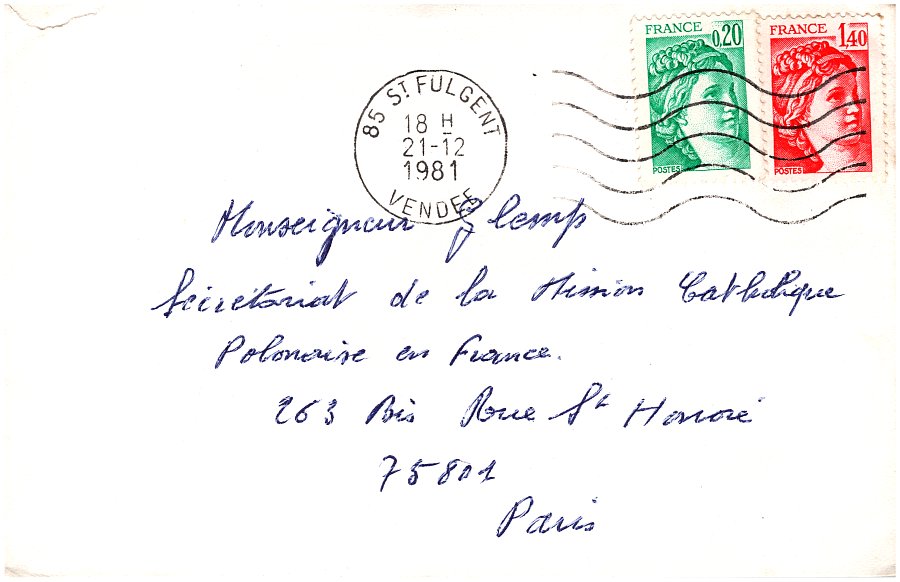 FRANCE 0,20
POSTES
FRANCE 1,40
POSTES
85 ST FULGENT
18 H
21-12
1981
VENDEE
Monseigneur Glemp
Sécrétariat de la Mission Catholique
Polonaise en France.
263 Bis Rue St Honoré
75801
Paris